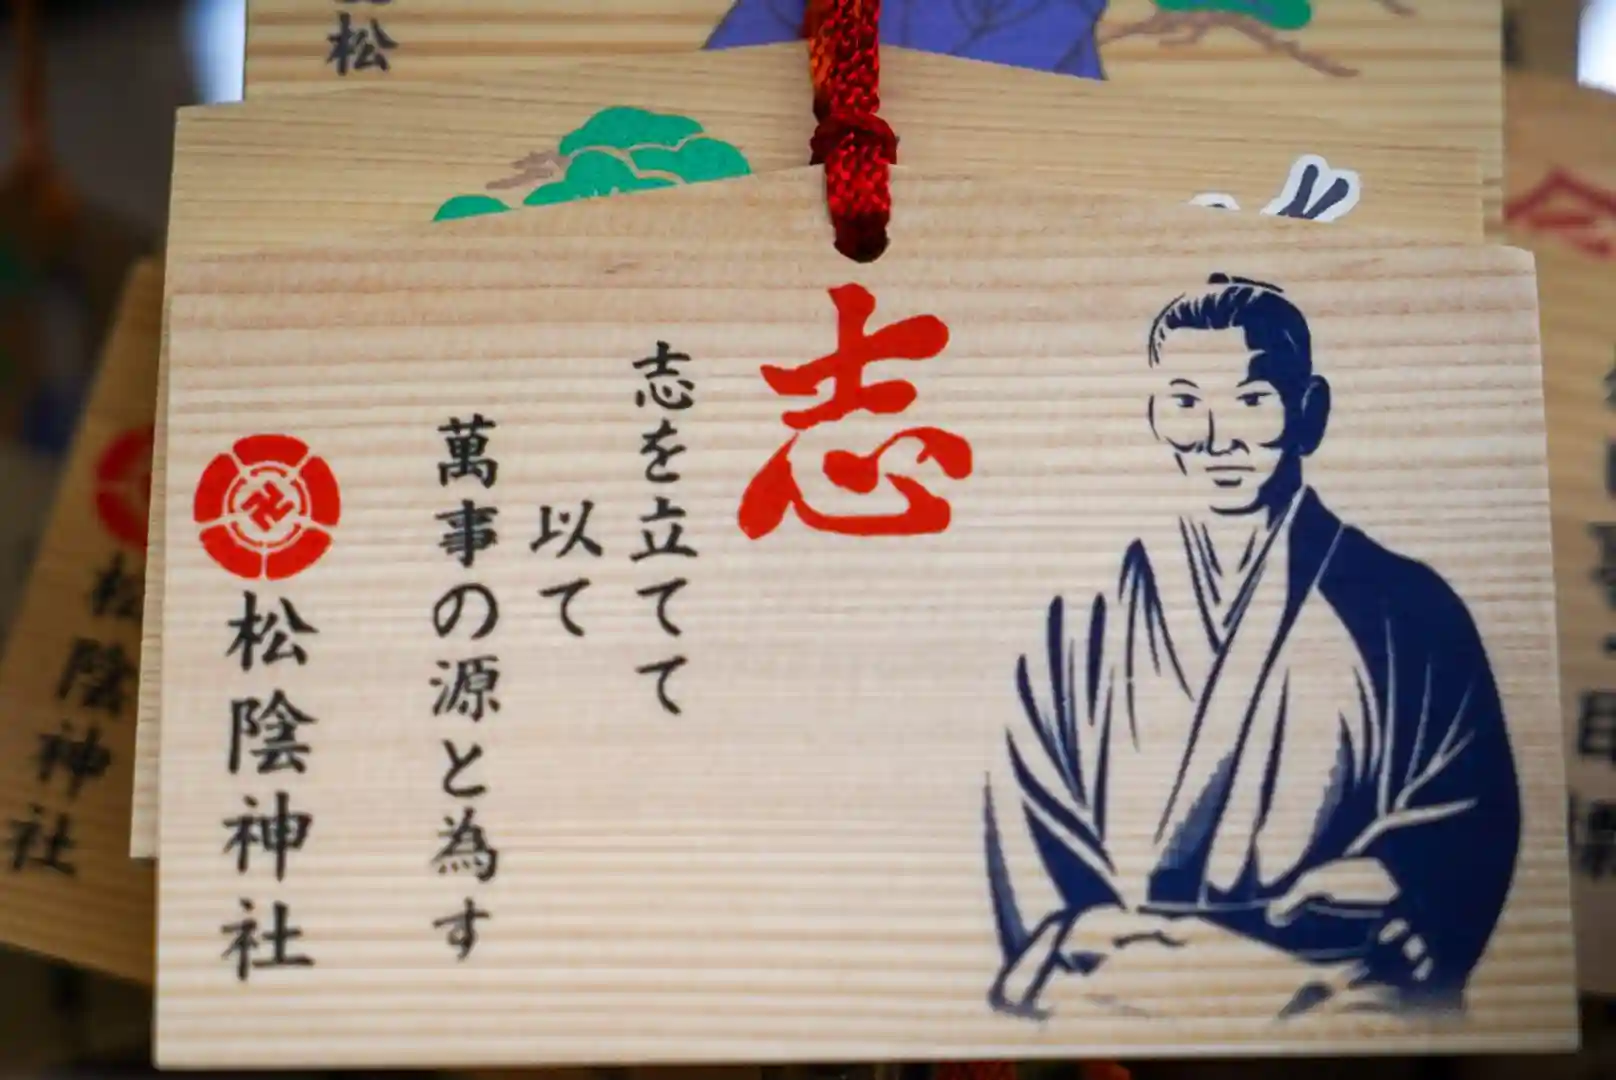 志
志を立てて
以て
萬事の源と為す
松陰神社
松陰神社
松